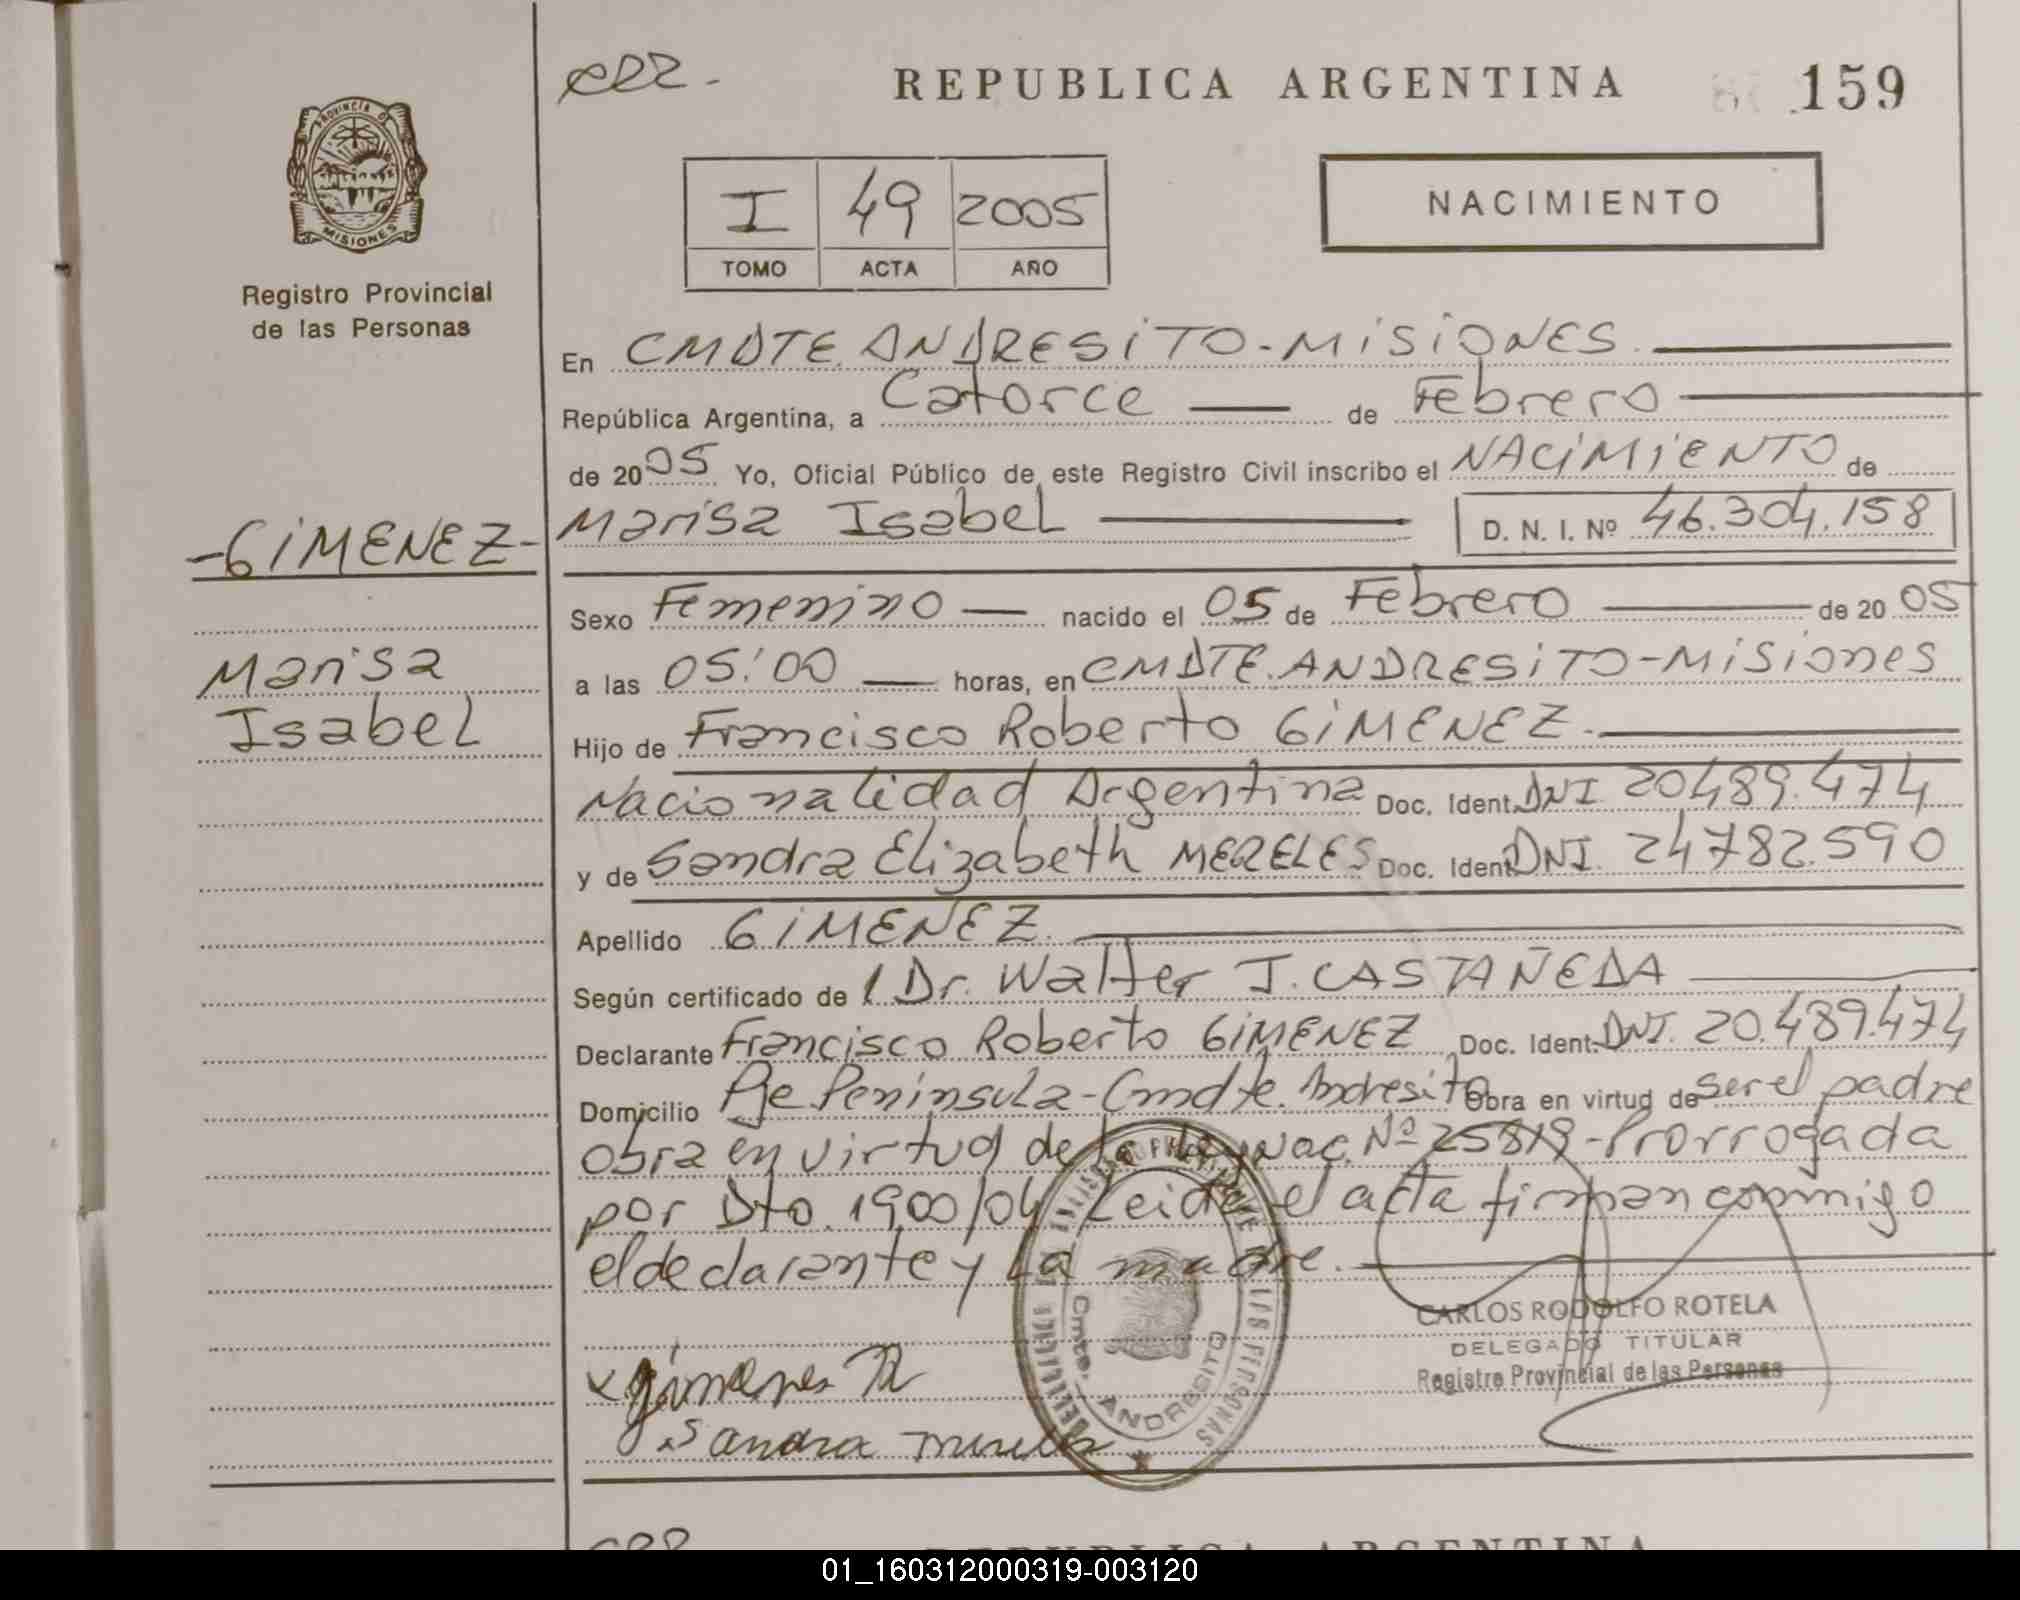 REPUBLICA ARGENTINA
159
PROVINCIA DE
MISIONES
Registro Provincial
de las Personas
I 49 2005
TOMO ACTA AÑO
NACIMIENTO
En CMDTE. ANDRESITO - MISIONES.
República Argentina, a Catorce de Febrero
de 2005 Yo, Oficial Público de este Registro Civil inscribo el NACIMIENTO de
Marisa Isabel D. N. I. Nº 46.304.158
-GIMENEZ-
Marisa
Isabel
Sexo Femenino nacido el 05 de Febrero de 2005
a las 05:00 horas, en CMDTE. ANDRESITO - MISIONES
Hijo de Francisco Roberto GIMENEZ.
Nacionalidad Argentina Doc. Ident. DNI. 20.489.474
y de Sandra Elizabeth MERELES Doc. Ident. DNI. 24.782.590
Apellido GIMENEZ.
Según certificado de Dr. Walter J. CASTAÑEDA
Declarante Francisco Roberto GIMENEZ Doc. Ident. DNI. 20.489.474
Domicilio Pje Península - Cmdte. Andresito Obra en virtud de ser el padre
obra en virtud de la Ley Nac. Nº 25819 - Prorrogada
por Dto. 1900/04 Leida el acta firman conmigo
el declarante y La madre.
CARLOS RODOLFO ROTELA
DELEGADO TITULAR
Registro Provincial de las Personas
Cmte. ANDRESITO
Gimenes R
Sandra
REPUBLICA ARGENTINA
01_160312000319-003120